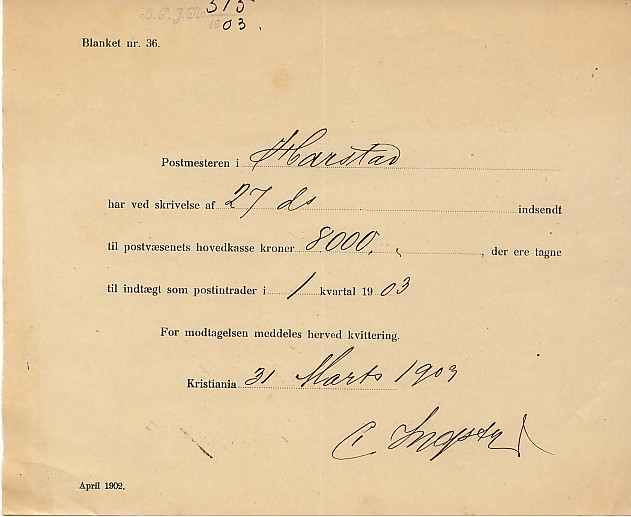 313
03.
Blanket nr. 36.
Postmesteren i Harstad
har ved skrivelse af 27 ds indsendt
til postvæsenets hovedkasse kroner 8000, , der ere tagne
til indtægt som postintrader i 1 kvartal 1903
For modtagelsen meddeles herved kvittering.
Kristiania 31 Marts 1903
April 1902.